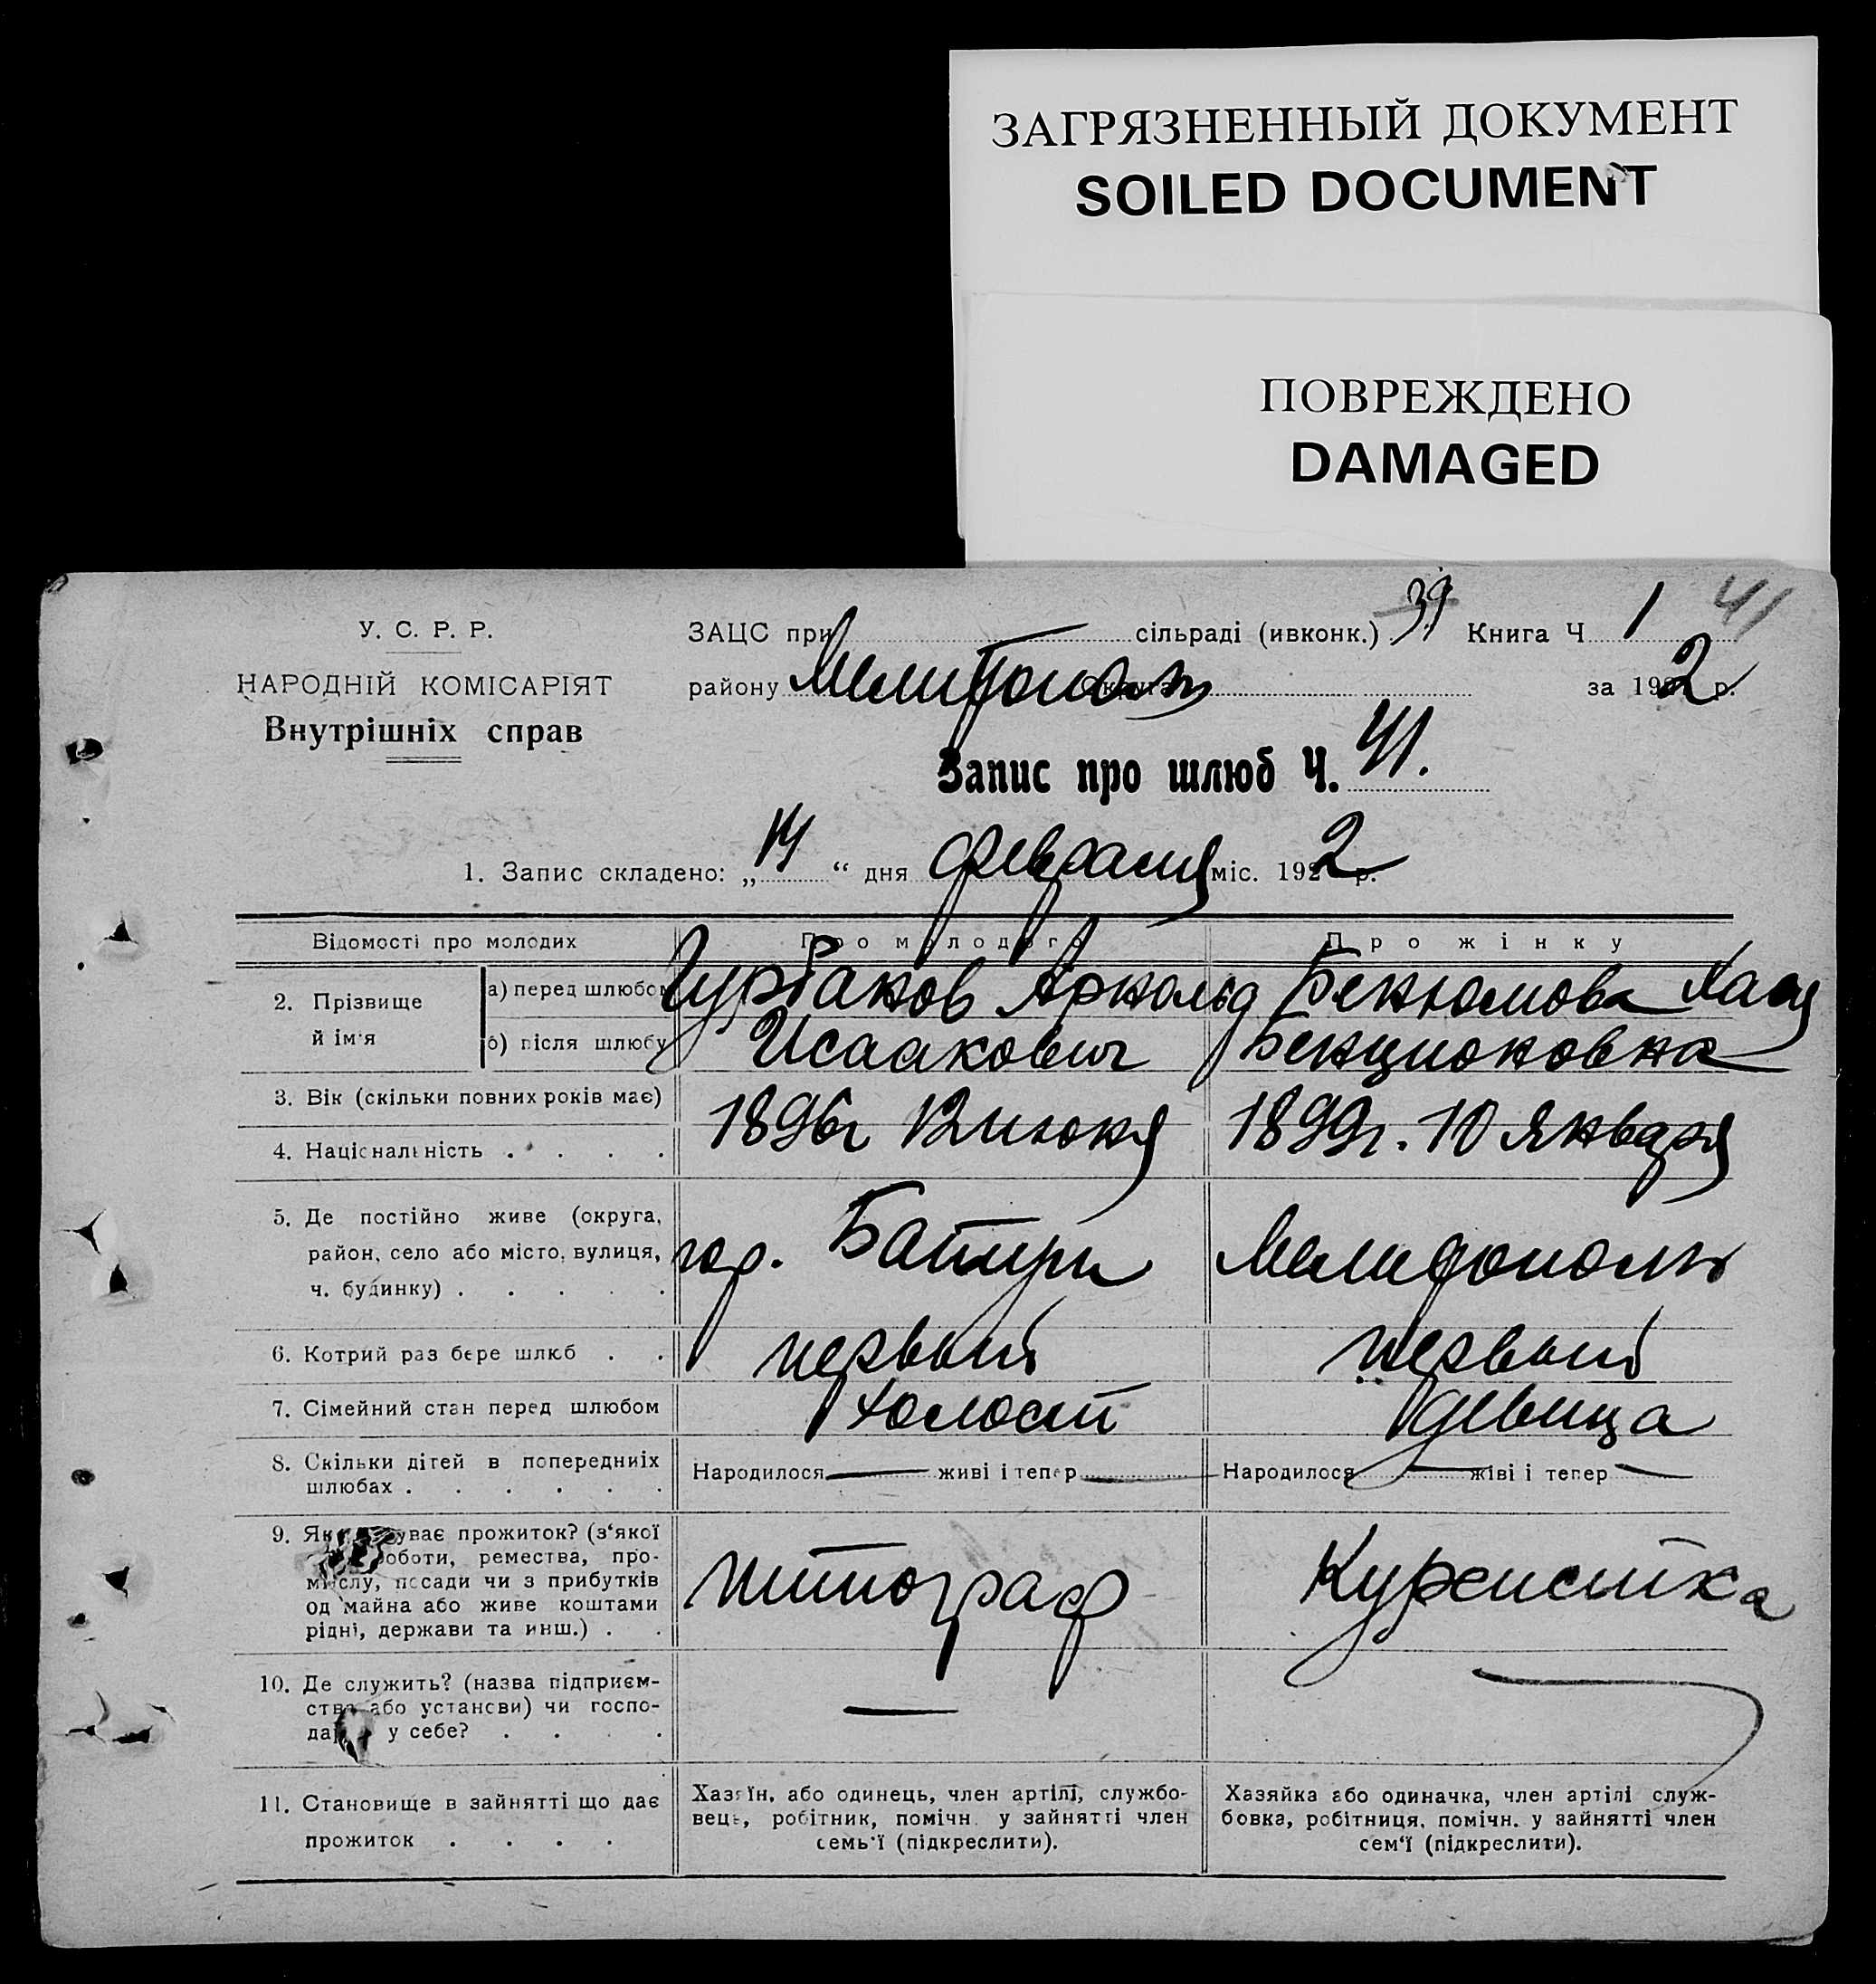 ЗАГРЯЗНЕННЫЙ ДОКУМЕНТ
SOILED DOCUMENT
ПОВРЕЖДЕНО
DAMAGED
41
У. С. Р. Р.
НАРОДНІЙ КОМІСАРІЯТ
Внутрішніх справ
ЗАЦС при сільраді (ивконк.) 39 Книга Ч 1
району Мелитополь за 1922 р.
Запис про шлюб Ч. 41.
1. Запис складено: „14“ дня февраля міс. 1922 р.
Відомості про молодих
Про молодого
Про жінку
2. Прізвище й ім'я
а) перед шлюбом
б) після шлюбу
Арнольд
Исаакович
Хася
Бенционовна
3. Вік (скільки повних років має)
4. Національність . . . .
1896г 12 июня
1899г. 10 января
5. Де постійно живе (округа,
район, село або місто, вулиця,
ч. будинку) . . . . .
гор.
Мелитополь
6. Котрий раз бере шлюб . .
первый
первый
7. Сімейний стан перед шлюбом
холост
девица
8. Скільки дітей в попередниіх
шлюбах . . . . . .
Народилося — живі і тепер —
Народилося — живі і тепер —
9. уває прожиток? (з'якої
роботи, ремества, про-
мислу, посади чи з прибутків
од майна або живе коштами
рідні, держави та инш.) . .
Курсистка
10. Де служить? (назва підприєм-
ства або установи) чи госпо-
у себе? . . . .
—
11. Становище в зайнятті що дає
прожиток . . . .
Хазяїн, або одинець, член артілі, службо-
вець, робітник, помічн. у зайнятті член
семь'ї (підкреслити).
Хазяйка або одиначка, член артілі служ-
бовка, робітниця, помічн. у зайнятті член
сем'ї (підкреслити).